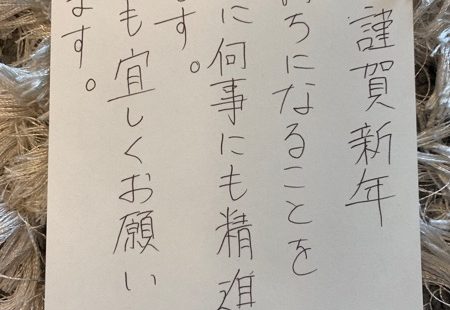 謹賀新年
ちになることを
に何事にも精進
す。
も宜しくお願い
ます。